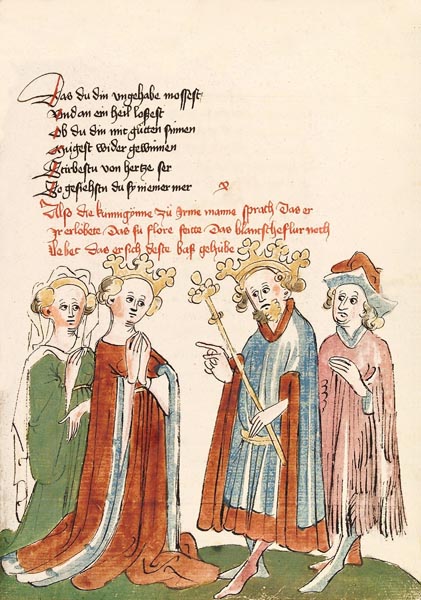 Das du din ungehabe mossest
Und an ein heil lossest
Ob du din mit gutten sinnen
Mugest wider gewinnen
Stirbestu von hertze ser
So gesiehstu du sy niemer mer
Also die kunnigynne zu Irme manne sprach Das er
Ir erlobete Das su flore seite Das blantscheflur noch
lebet Das er sich deste bas gehube